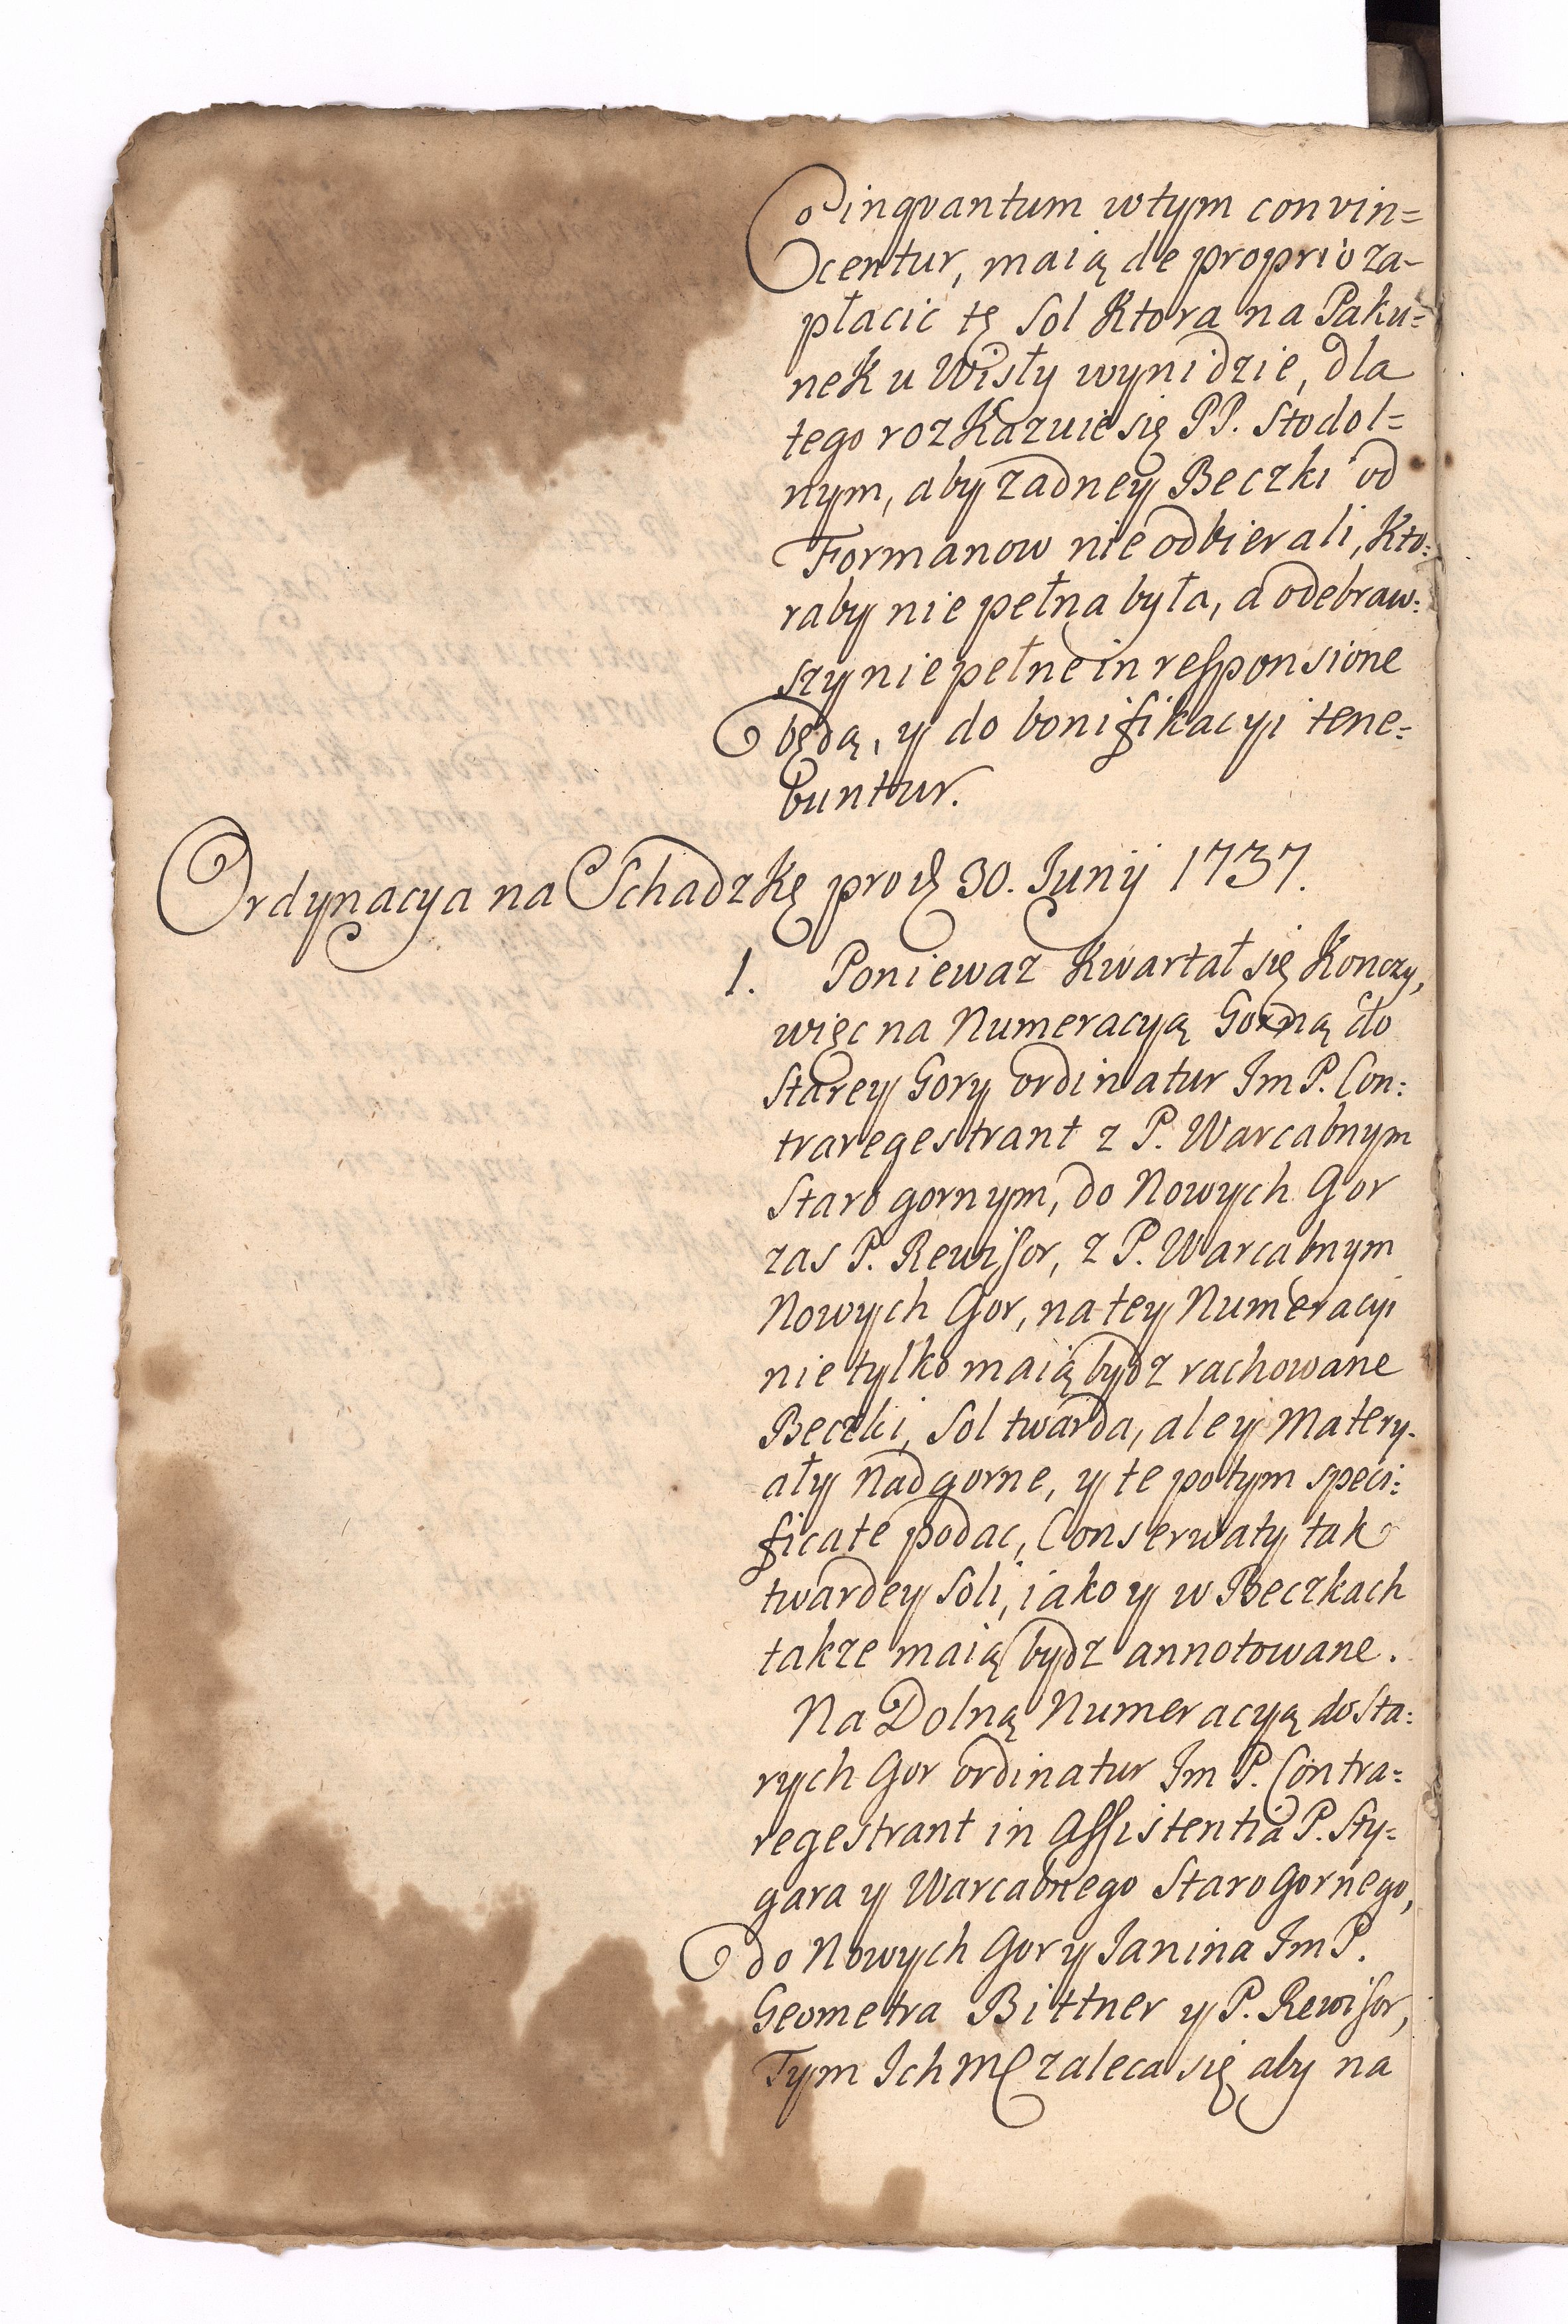 inqvantum w tym convin=
centur, maią de proprio za-
płacic tę Sol Ktora na Paku=
nek u Wisły wynidzie, dla
tego rozKazuie się PP. Stodol=
nym, aby zadney Beczki od
Formanow nie odbierali, Kto:
raby nie pełna była, a odebraw:
szy nie pełne in responsione
będą, y do bonifikacyi tene=
buntur.
Ordynacya na SchadzKę pro 30. Junij 1737.
1. Poniewaz Kwartał się Konczy,
więc na Numeracyą Gorną do
Starey Gory ordinatur Jm P. Con:
traregestrant z P. Warcabnym
Staro gornym, do Nowych Gor
zas P. Rewisor, z P. Warcabnym
Nowych Gor, na tey Numeracyi
nie tylko maią bydz rachowane
Beczki, Sol twarda, ale y Matery-
ały Nadgorne, y te potym speci:
ficate podac, Conserwaty tak
twardey Soli, iako y w Beczkach
takze maią bydz annotowane.
Na Dolną Numeracyą do Sta:
rych Gor ordinatur Jm P. Contra=
regestrant in Assistentia P. Sty=
gara y Warcabnego Staro Gornego,
do Nowych Gor y Janina Jm P.
Geometra Bittner y P. Rewisor,
Tym Ich Mc zaleca się aby na